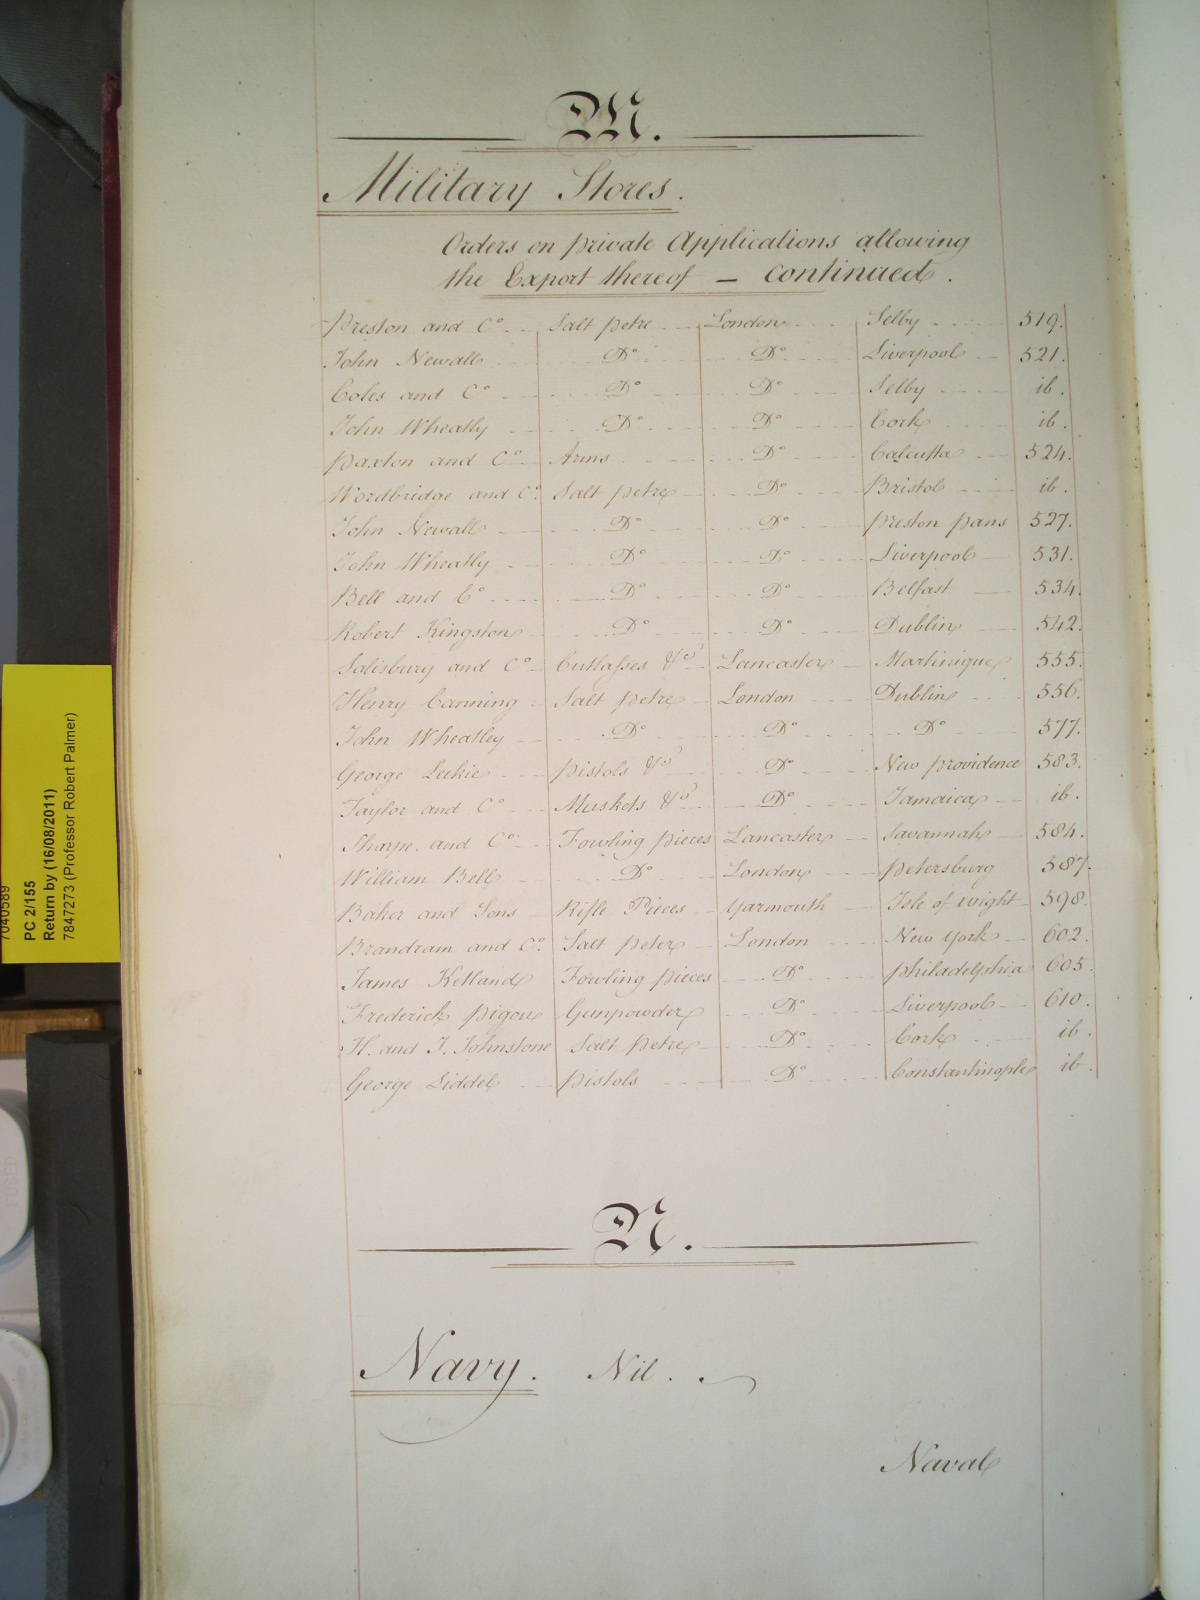 M.
Military Stores.
Orders on private Applications allowing
the Export thereof — continued.
Preston and Co. Salt petre London Selby 519.
John Newall Do Do Liverpool 521.
Coles and Co Do Do Selby ib.
John Wheatly Do Do Cork ib.
Paxton and Co Arms Do Calcutta 524.
Wordbridge and Co. Salt petre Do Bristol ib.
John Newall Do Do Preston pans 527.
John Wheatly Do Do Liverpool 531.
Bell and Co Do Do Belfast 534.
Robert Kingston Do Do Dublin 542.
Salisbury and Co Cutlasses &c Lancaster Martinique 555.
Henry Canning Salt petre London Dublin 556.
John Wheatley Do Do Do 577.
George Leckie Pistols &c Do New providence 583.
Taylor and Co Muskets &c Do Jamaica ib.
Sharpe and Co Fowling pieces Lancaster Savannah 584.
William Bell Do London Petersburg 587.
Baker and Sons Rifle Pieces Yarmouth Isle of Wight 598.
Brandram and Co. Salt peter London New York 602.
James Ketland Fowling pieces Do Philadelphia 605.
Frederick Pigou Gunpowder Do Liverpool 610.
H. and J. Johnstone Salt petre Do Cork ib.
George Liddel Pistols Do Constantinople ib.
N.
Navy. Nil.
Naval
PC 2/155
Return by (16/08/2011)
7847273 (Professor Robert Palmer)